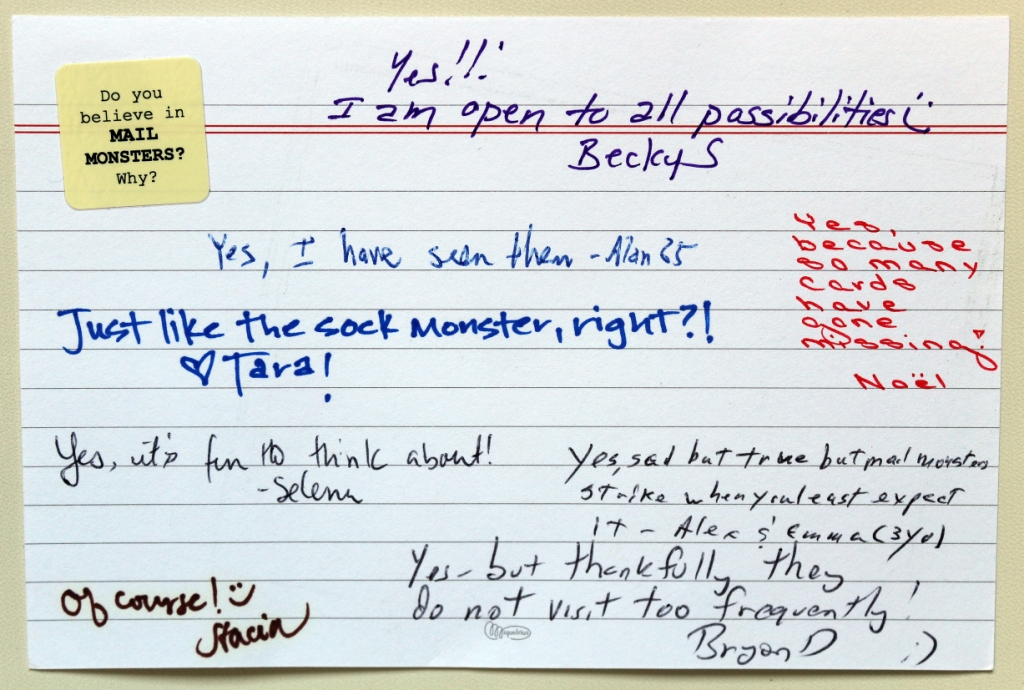 Do you
believe in
MAIL
MONSTERS?
Why?
Yes!!!
I am open to all possibilities
Becky S
Yes, I have seen them - Alan 25
Yes,
because
so many
cards
have
gone
missing!
Noël
Just like the sock monster, right?!
♡ Tara!
Yes, it's fun to think about!
-Selena
Yes, sad but true but mail monsters
strike when you least expect
it - Alex & Emma (3yo)
Yes - but thankfully they
do not visit too frequently!
Bryan D :)
Of course! :)
Stacia